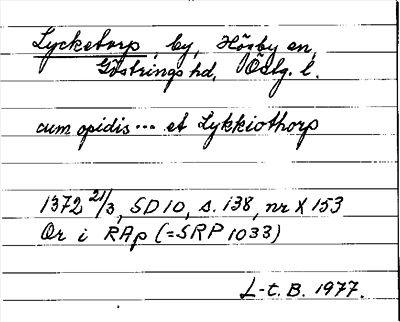 Lycketorp, by, Högby sn,
Göstrings hd, Östg. l.
cum opidis... et Lykkiothorp
1372 21/3, SD 10, s. 138, nr X 153
Or i RAp (=SRP 1033)
L-t. B. 1977.